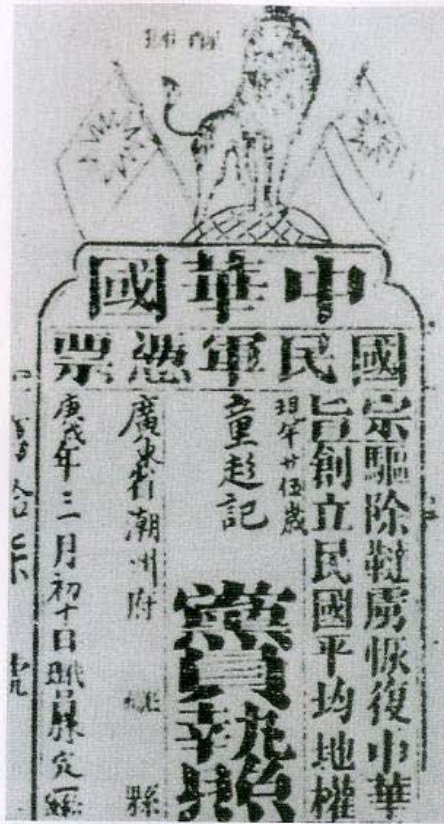 中華國
國民軍憑票
宗驅除韃虜恢復中華
旨創立民國平均地權
現年廿伍歲
童趁記
黨員執照
廣東省潮州府 縣
庚戌年三月初十日